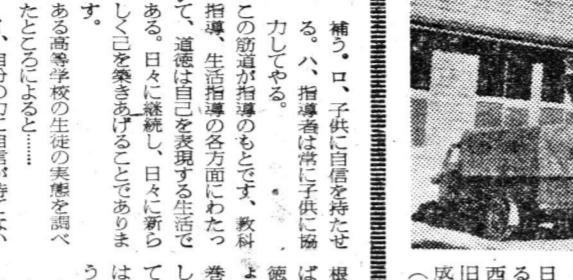 補う。ロ、子供に自信を持たせ
る。ハ、指導者は常に子供に協
力してやる。
この筋道が指導のもとです、教科
指導、生活指導の各方面にわたっ
て、道徳は自己を表現する生活で
ある。日々に継続し、日々に新ら
しく己を築きあげることでありま
す。
ある高等学校の生徒の実態を調べ
たところによると……
日
る
西
旧
成
根
ば
徳
よ
巻
し
て
は
う